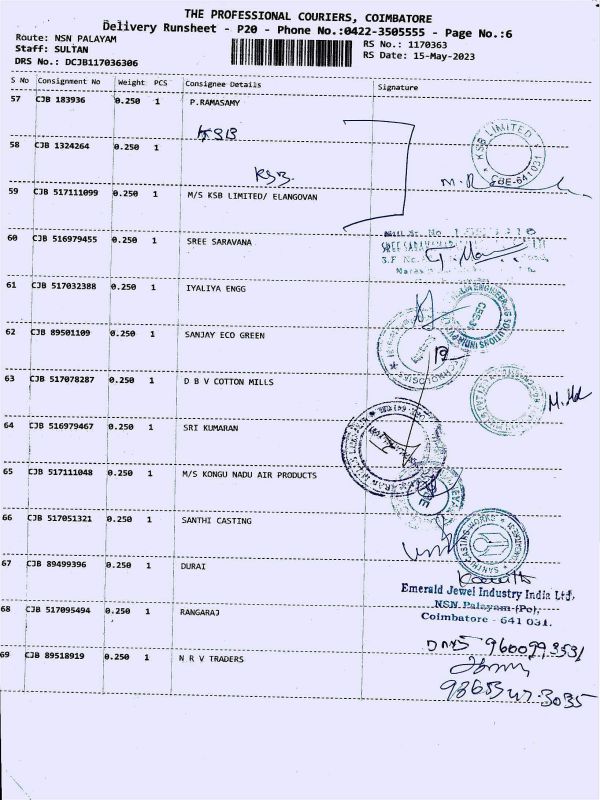 THE PROFESSIONAL COURIERS, COIMBATORE
Delivery Runsheet - P20 - Phone No.:0422-3505555 - Page No.:6
Route: NSN PALAYAM
Staff: SULTAN
DRS No.: DCJB117036306
RS No.: 1170363
RS Date: 15-May-2023
S No Consignment No Weight PCS Consignee Details Signature
57 CJB 183936 0.250 1 P.RAMASAMY
KSB
58 CJB 1324264 0.250 1
KSB
KSB LIMITED
CBE-641 031
59 CJB 517111099 0.250 1 M/S KSB LIMITED/ ELANGOVAN
60 CJB 516979455 0.250 1 SREE SARAVANA
61 CJB 517032388 0.250 1 IYALIYA ENGG
62 CJB 89501109 0.250 1 SANJAY ECO GREEN
63 CJB 517078287 0.250 1 D B V COTTON MILLS
64 CJB 516979467 0.250 1 SRI KUMARAN
65 CJB 517111048 0.250 1 M/S KONGU NADU AIR PRODUCTS
66 CJB 517051321 0.250 1 SANTHI CASTING
SANTHI CASTING WORKS
67 CJB 89499396 0.250 1 DURAI
Emerald Jewel Industry India Ltd,
NSN Palayam (Po),
Coimbatore - 641 031.
68 CJB 517095494 0.250 1 RANGARAJ
69 CJB 89518919 0.250 1 N R V TRADERS